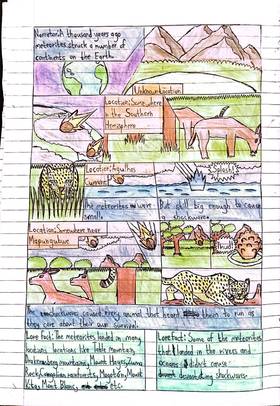 thousand years ago
meteorites struck a number of
continents on the Earth.
Unknown Location
Location: Some where
in the Southern
Hemisphere
Location: Agulhas
Current
Splash!
The meteorites were
small
But still big enough to cause
a shockwave.
Location: Somewhere near
Mapungubwe
Thud!
The shockwaves caused every animal that heard them to run as
they care about their own survival.
Lore fact: The meteorites landed in many
locations like Table Mountain,
Drakensberg mountains, Mount
Mont Blanc, etc.
Lore fact: Some of the meteorites
that landed in the rivers and
oceans didn't cause
devastating shockwaves.